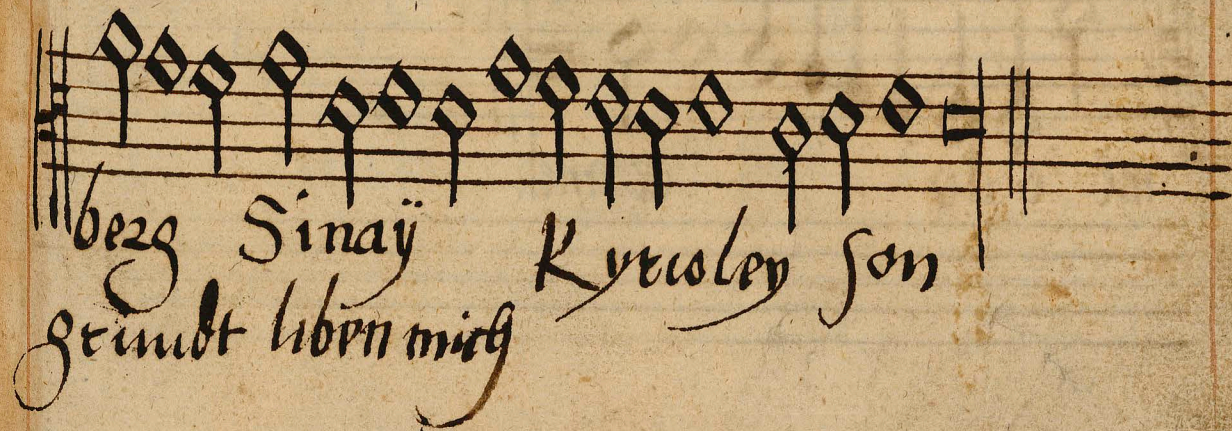 berg Sinaÿ Kyrioley son
grundt liben mich